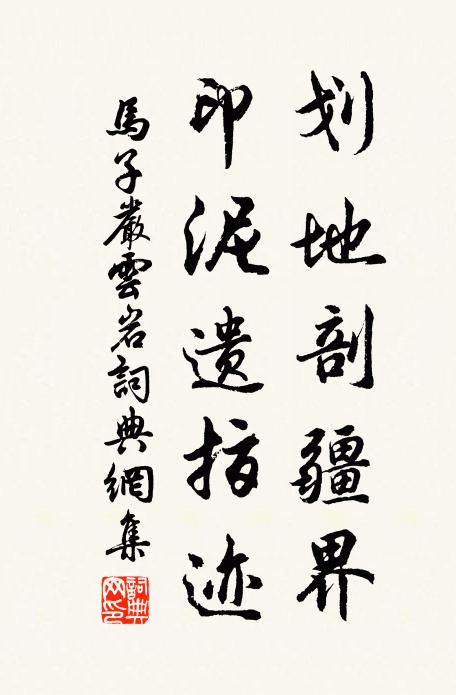 划地剖疆界
印泥遗指迹
馬子嚴雲岩詞典網集
詞典网印